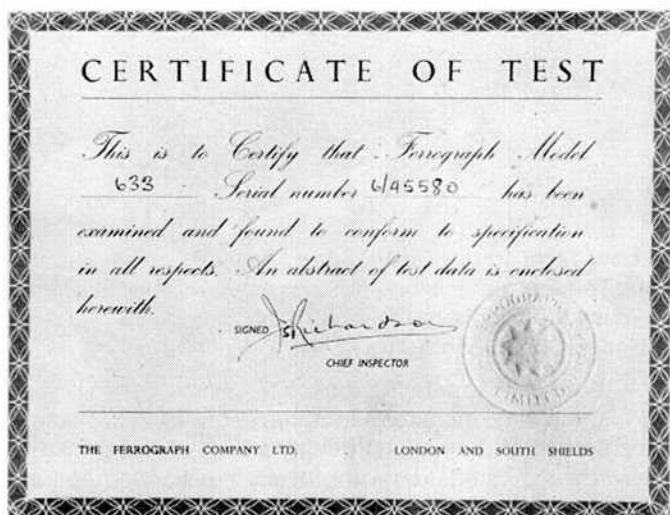 CERTIFICATE OF TEST
This is to Certify that Ferrograph Model
633 Serial number 6/45580 has been
examined and found to conform to specification
in all respects. An abstract of test data is enclosed
herewith.
SIGNED Richardson
CHIEF INSPECTOR
LIMITED
THE FERROGRAPH COMPANY LTD. LONDON AND SOUTH SHIELDS